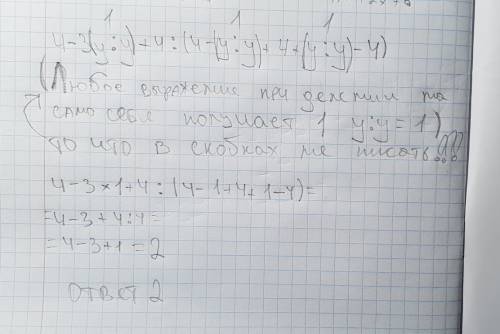 1 1 1
4-3(y:y)+4:(4-(y:y)+4+(y:y)-4)
(Любое выражение при делении на
само себя получает 1 y:y=1)
то что в скобках не писать!!!
4-3×1+4:(4-1+4+1-4)=
=4-3+4:4=
=4-3+1=2
ответ 2